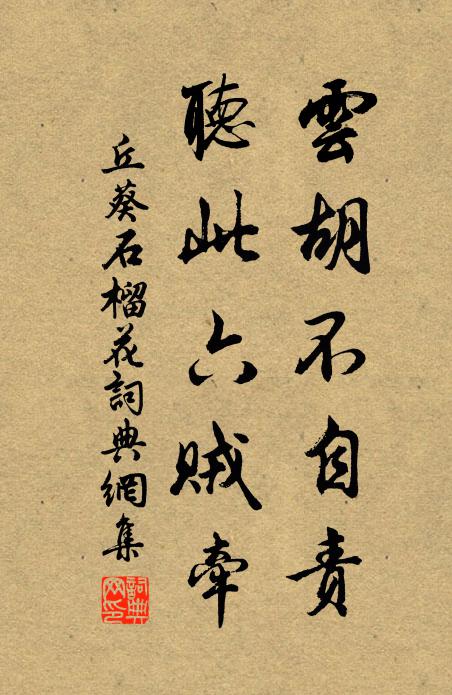 雲胡不自責
聽此六賊牽
丘葵石榴花詞典網集
詞典網印